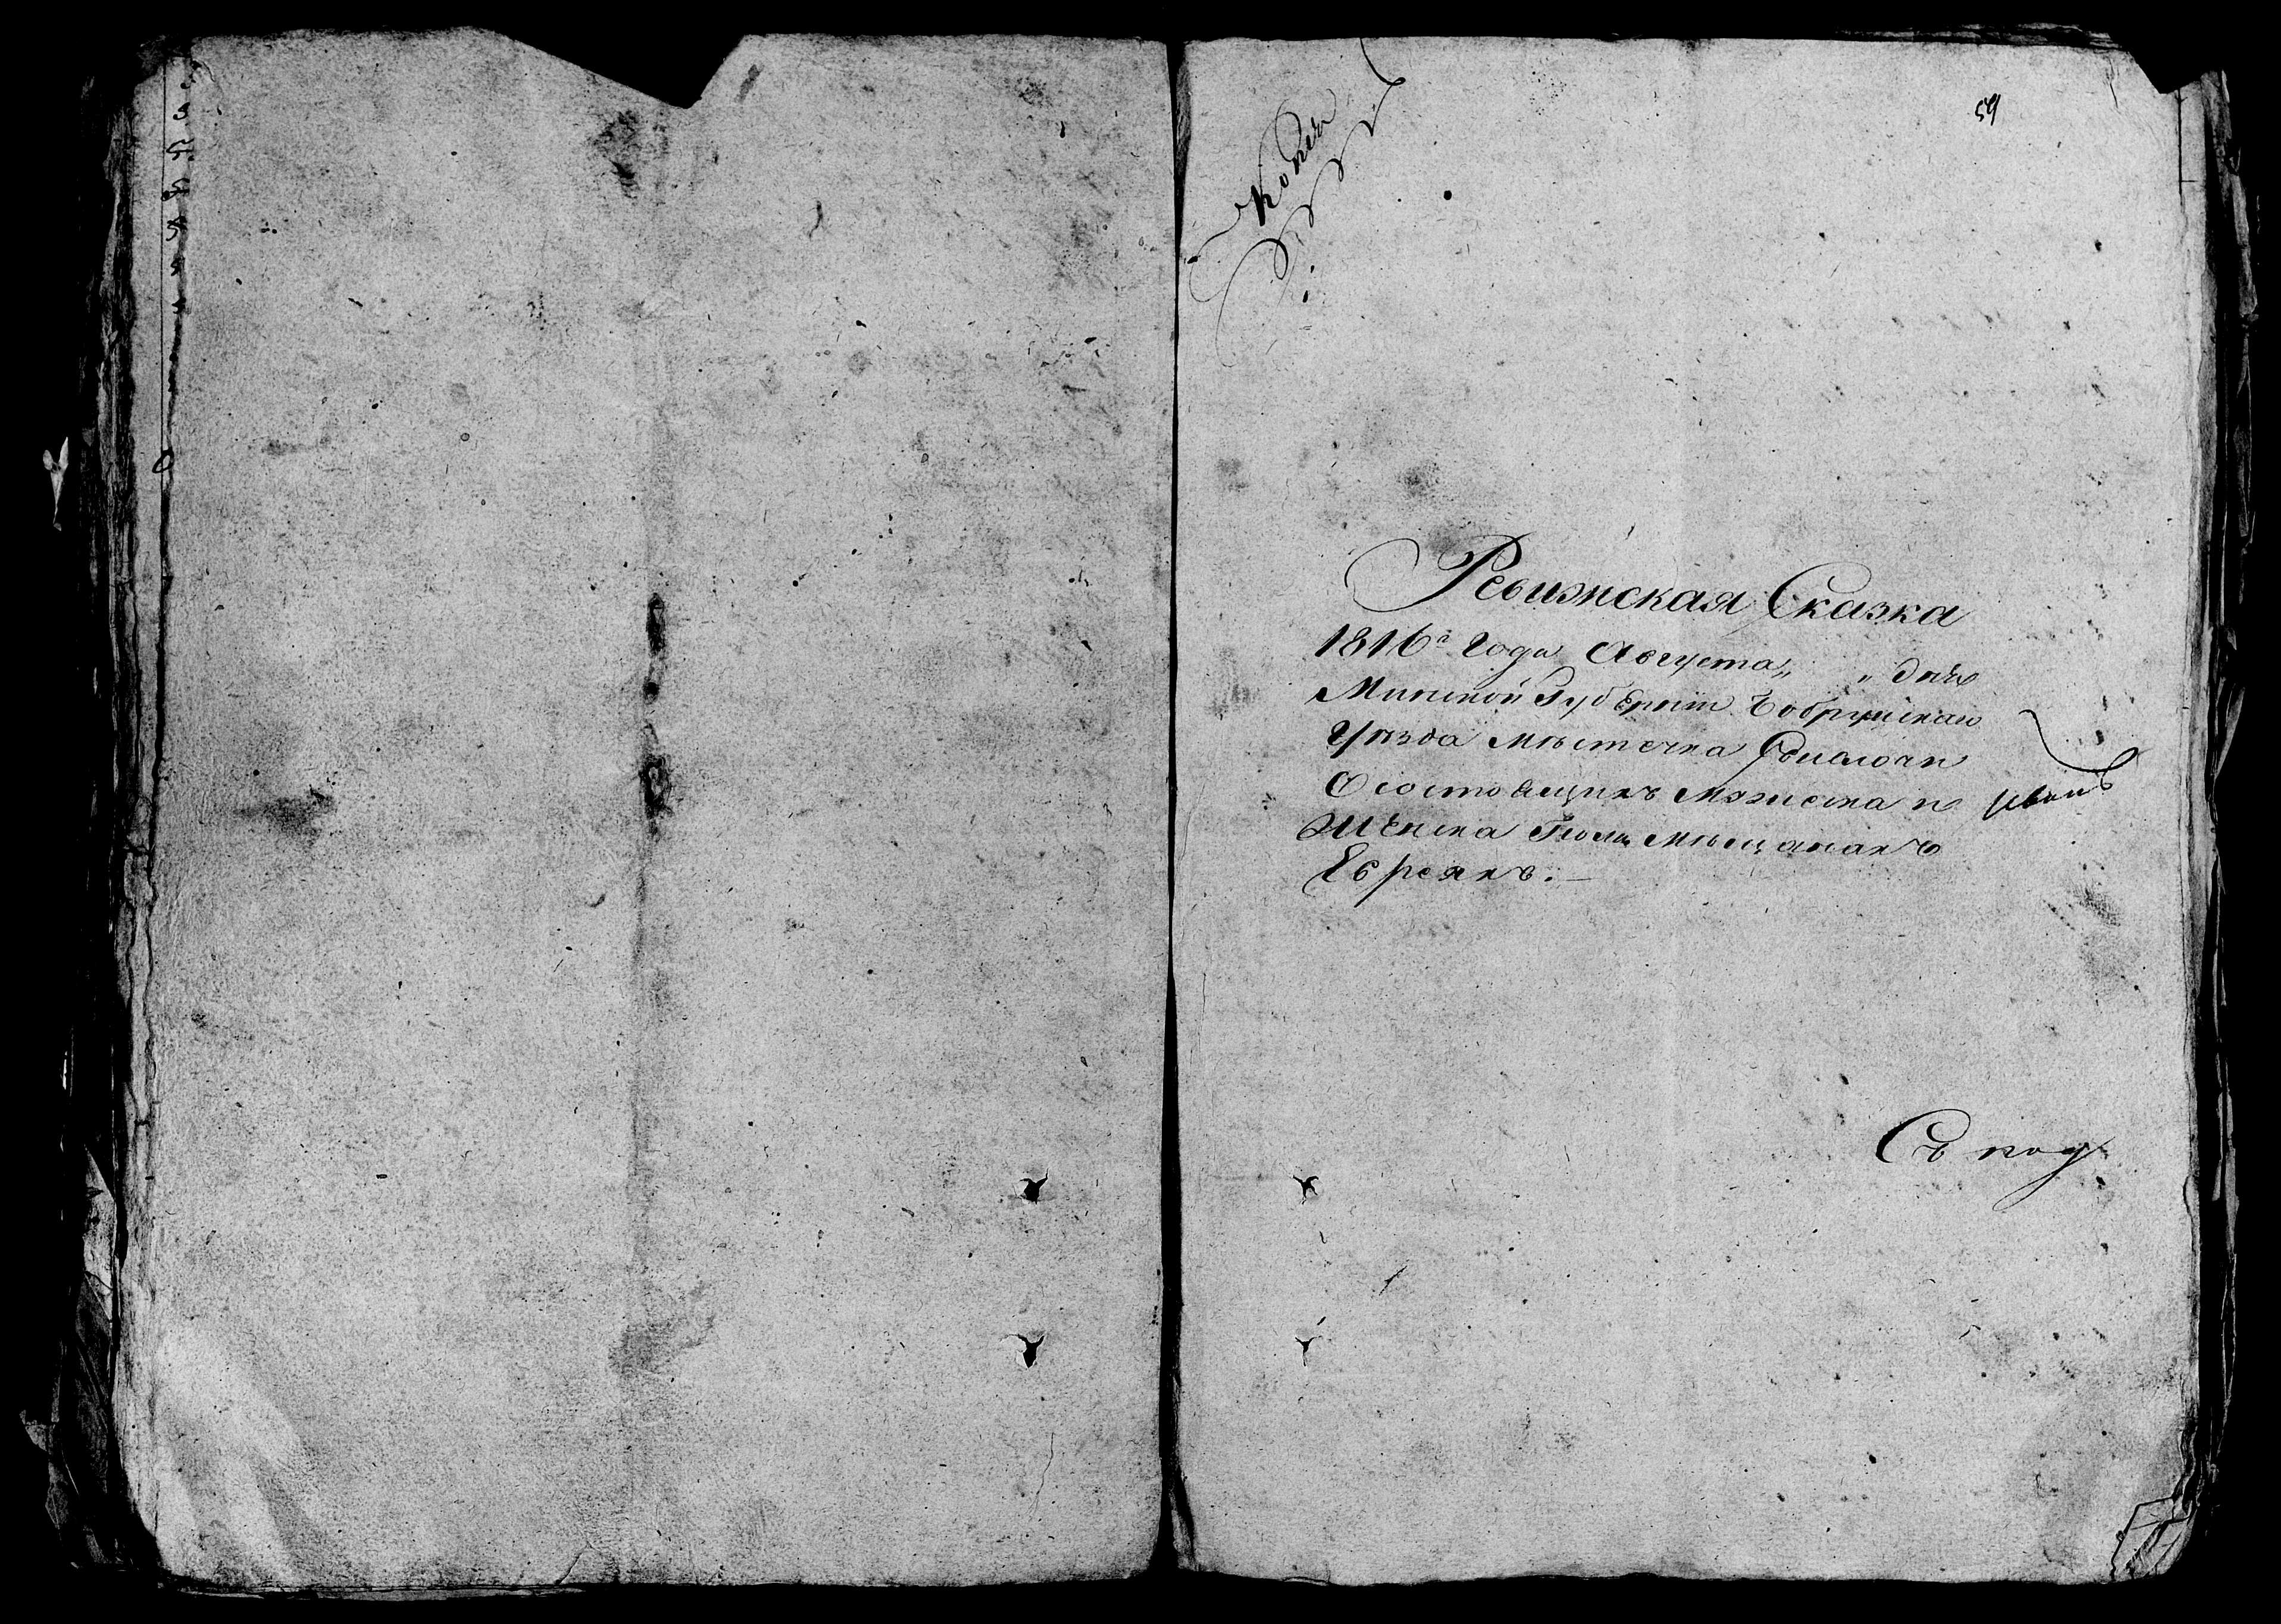 Копия
59
Ревижская Сказка
1816г года Августа „ „ дня
Минской Губернiи Бобруйскаго
Уѣзда мѣстечка
О состоящихъ мужеска и
женска полу мѣщанахъ
Евреяхъ. —
Съ под